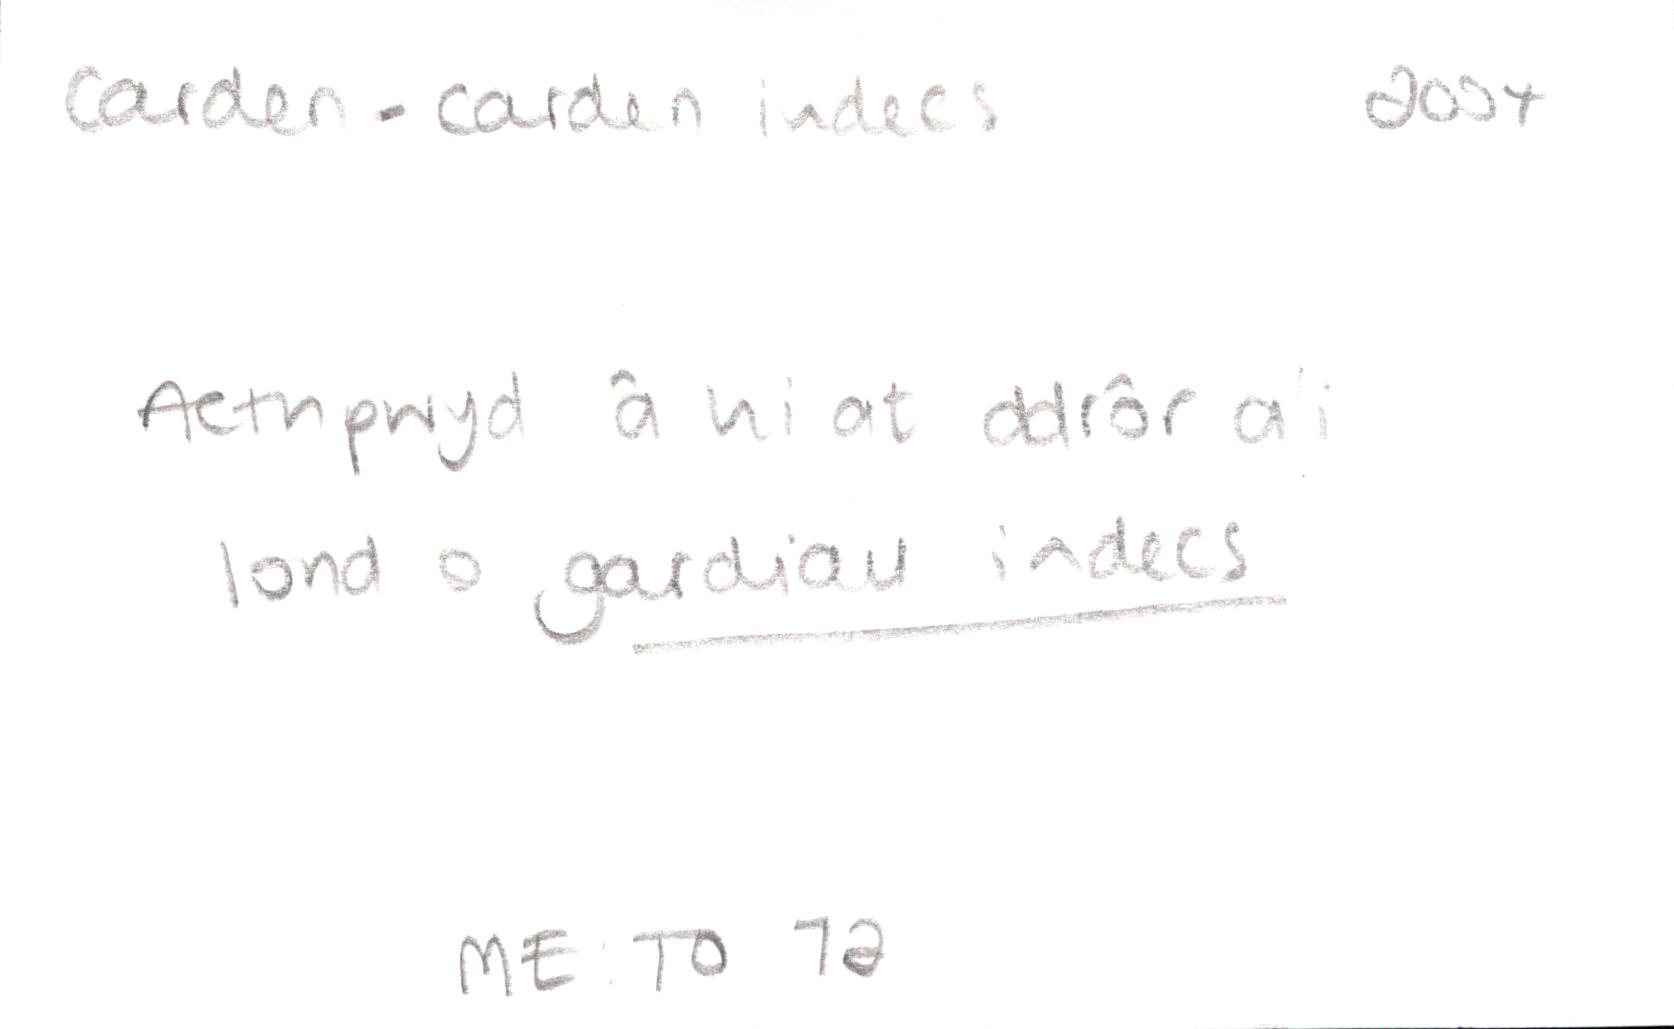 Carden - carden indecs 2004
Aethpwyd â ni at ddrôr a'i
lond o gardiau indecs
ME: TO 72